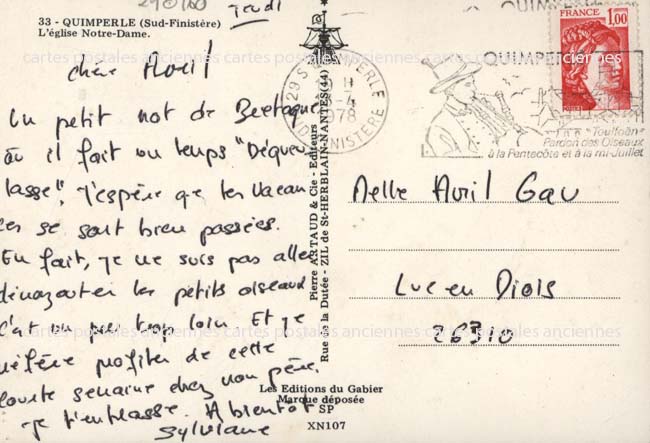 290160
33 - QUIMPERLE (Sud-Finistère)
L'église Notre-Dame.
jeudi
chère Avril
Un petit mot de Bretagne
où il fait un temps "Dégueu
lasse", J'espère que tes vacan
ces se sont bien passées.
En fait, je ne suis pas allée
démazouter les petits oiseaux
c'est un peu trop loin. Et je
préfère profiter de cette
courte semaine chez mon père.
Je t'embrasse. A bientôt
Sylviane
Les Editions du Gabier
Marque déposée
SP
XN107
Pierre ARTAUD & Cie - Editeurs
Rue de la Dutée - ZIL de St-HERBLAIN-NANTES (44)
29 S QUIMPERLE
-4
1978
FINISTERE
QUIMPER
QUIMPERLE
"Toulfoën"
Pardon des Oiseaux
à la Pentecôte et à la mi-Juillet
1,00
Melle Avril Gau
Luc en Diois
26310
cartes postales anciennes cartes postales anciennes cartes postales anciennes